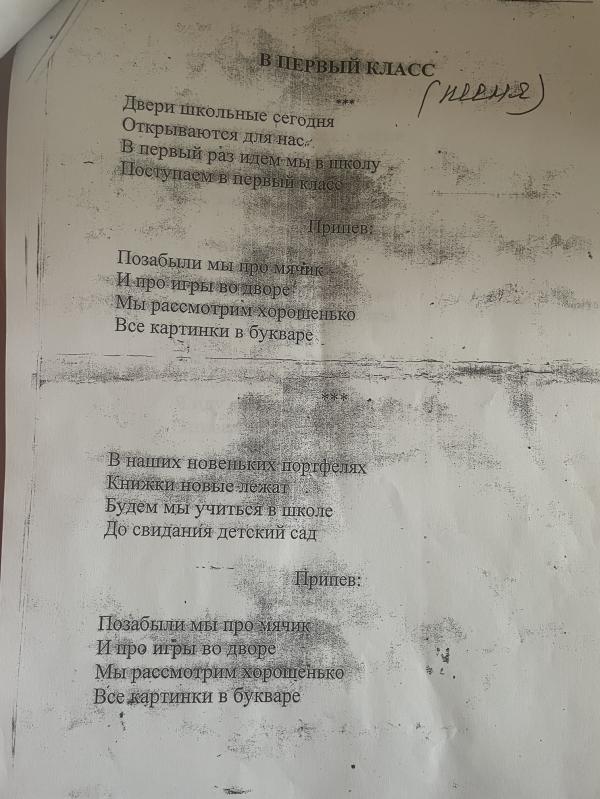 В ПЕРВЫЙ КЛАСС
(песня)
***
Двери школьные сегодня
Открываются для нас.
В первый раз идем мы в школу
Поступаем в первый класс
Припев:
Позабыли мы про мячик
И про игры во дворе
Мы рассмотрим хорошенько
Все картинки в букваре
***
В наших новеньких портфелях
Книжки новые лежат
Будем мы учиться в школе
До свидания детский сад
Припев:
Позабыли мы про мячик
И про игры во дворе
Мы рассмотрим хорошенько
Все картинки в букваре